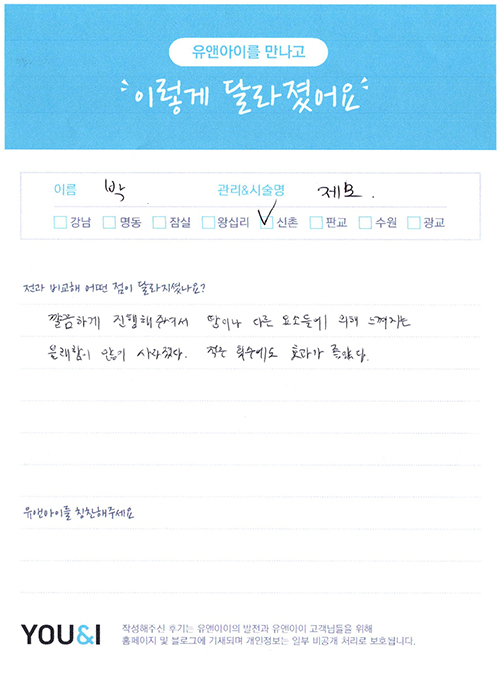 유앤아이를 만나고
이렇게 달라졌어요
이름 박 관리&시술명 제모.
강남 명동 잠실 왕십리 신촌 판교 수원 광교
전과 비교해 어떤 점이 달라지셨나요?
깔끔하게 진행해주셔서 땀이나 다른 요소들에 의해 느껴지는
불쾌함이 많이 사라졌다. 적은 횟수에도 효과가 좋았다.
유앤아이를 칭찬해주세요
YOU&I
작성해주신 후기는 유앤아이의 발전과 유앤아이 고객님들을 위해
홈페이지 및 블로그에 기재되며 개인정보는 일부 비공개 처리로 보호됩니다.